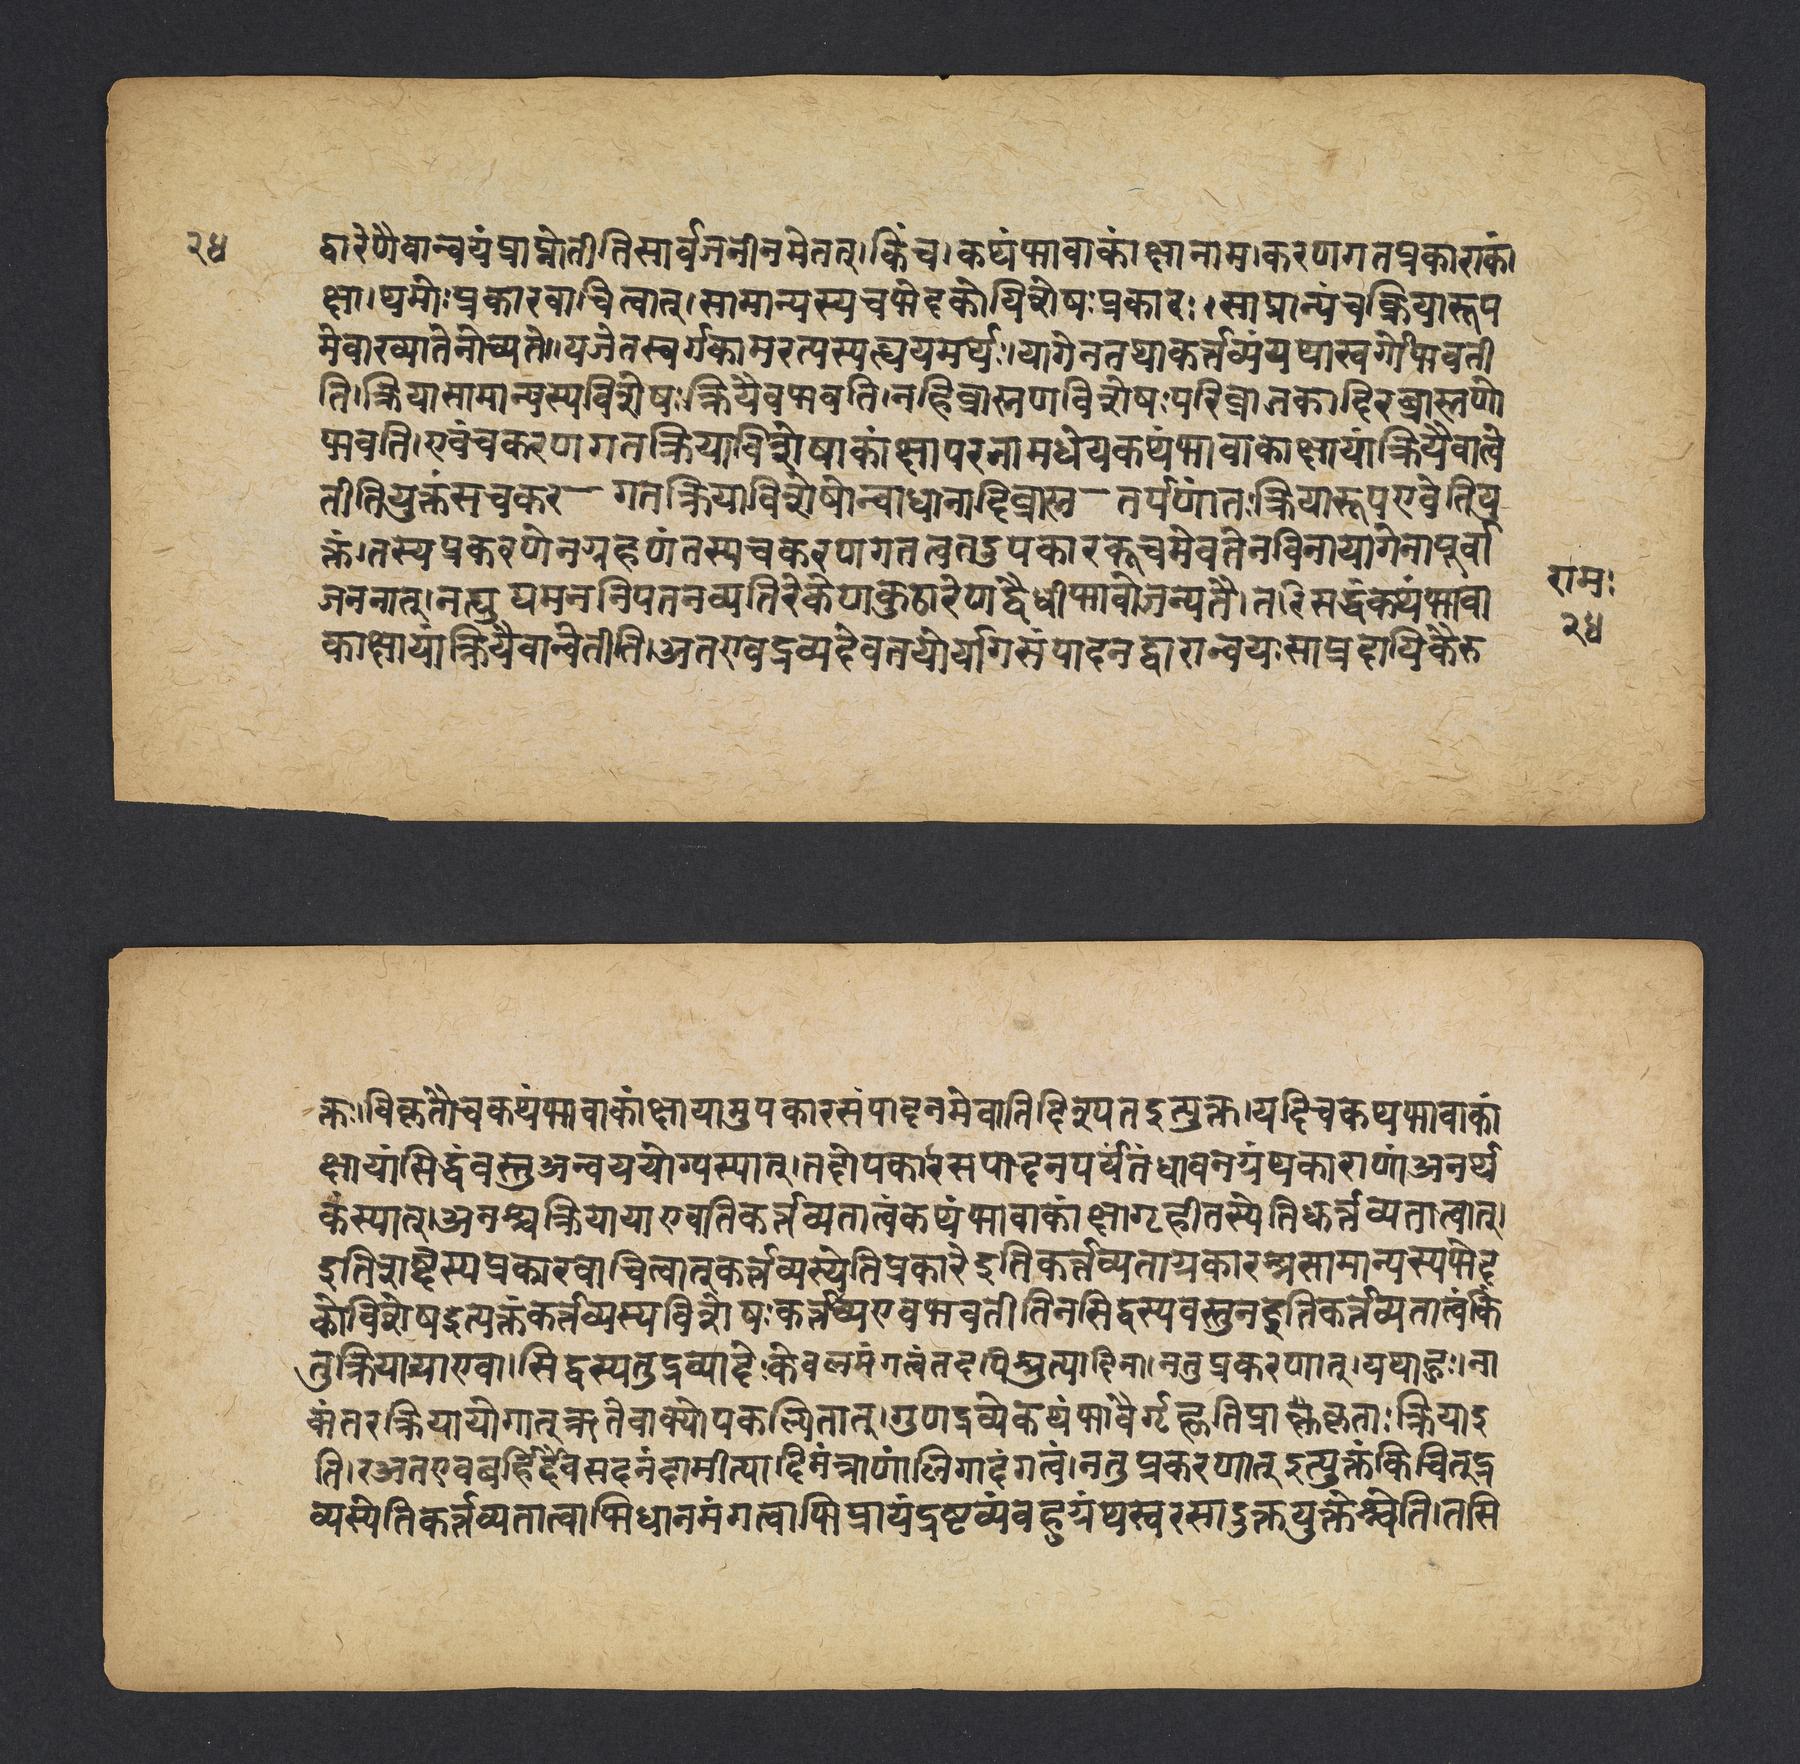 २४
द्वारेणैवान्वयंप्राप्नोतीतिसार्वजनीनमेतत्।किंच।कथंभावाकांक्षानाम।करणगतप्रकाराकां
क्षा।थमोःप्रकारवाचित्वात्।सामान्यस्यचभेदकोयिशेषःप्रकारः।साप्रान्यंचक्रियारूप
मेवारव्यातेनोच्यते॥यजेतस्वर्गकामरत्यस्यत्द्ययमर्थः।यागेनतथाकर्त्तव्यंयथास्वर्गोभवती
ति।क्रियासामान्यस्यविशेषःक्रियैवभवति।नहिब्राह्मणविशेषःपरिव्राजकादिरब्राह्मणो
भवति।एवंचकरणगतक्रियाविशेषाकांक्षापरनामधेयकथंभावाकाक्षायांक्रियैवाल्वे
तीतियुक्तंसचकर— गतक्रियाविशेषोन्वाधानादिब्राह्म— तर्पणांतःक्रियारूपएवेतियु
क्तं।तस्यप्रकरणेनग्रहणंतस्यचकरणगतत्वतदुपकारकत्वमेवतेनविनायागेनापूर्वा
जननात्।नत्द्युद्यमननिपतनव्यतिरेकेणकुठारेणद्वैधीभावोजन्यते।त।रिसद्धंकथंभावा
काक्षायांक्रियैवान्वेतीति।अतएवद्रव्यदेवतयोर्यागसंपादनद्वारान्वयःसाप्रदायिकैरु
रामः
२४
क्तः।विकृतौचकथंभावाकांक्षायामुपकारसंपादनमेवातिदिश्यतइत्युक्त।यदिचकथभावाकां
क्षायांसिद्धंवस्तुअन्वययोग्यस्यात्।तर्होपकारसपादनपर्यंतंधावनग्रंथकाराणांअनर्थ
कंस्यात्।अतश्चक्रियायाएवातिकर्त्तव्यतात्वंकथंभावाकांक्षागृहीतस्येतिकर्त्तव्यतात्वात्।
इतिशब्दस्यप्रकारवाचित्वात्कर्त्तव्यस्येतिप्रकारेइतिकर्त्तव्यताप्रकारश्चसामान्यस्यभेद
कोविशेषइत्यक्तंकर्त्तव्यस्यविशेषःकर्त्तव्यएवभवतीतिनसिद्धस्यवस्तुनइतिकर्त्तव्यतात्वंकिं
तुक्रियायाएव।सिद्धस्यतुद्रव्यादेःकेवलमंगत्वंतदपिश्रुत्यादिना।नतुप्रकरणात्।यथाहुः।ना
मंतरक्रियायोगात्ऋतेवाक्योपकल्पितात्।गुणद्रव्येकथंभावैर्गृह्णतिप्राकृतैकृताःक्रियाइ
ति।रअतएवबर्हिर्देवसदनंदामीत्यादिमंत्राणांलिगादंगत्वं।नतुप्रकरणात्इत्युक्तंकिचित्द्र
व्यस्येतिकर्त्तव्यतात्वाभिधानमंगत्वाभिप्रायंद्रष्टव्यंवहुग्रंथस्वरसादुक्तयुक्तेश्चेति।तसि